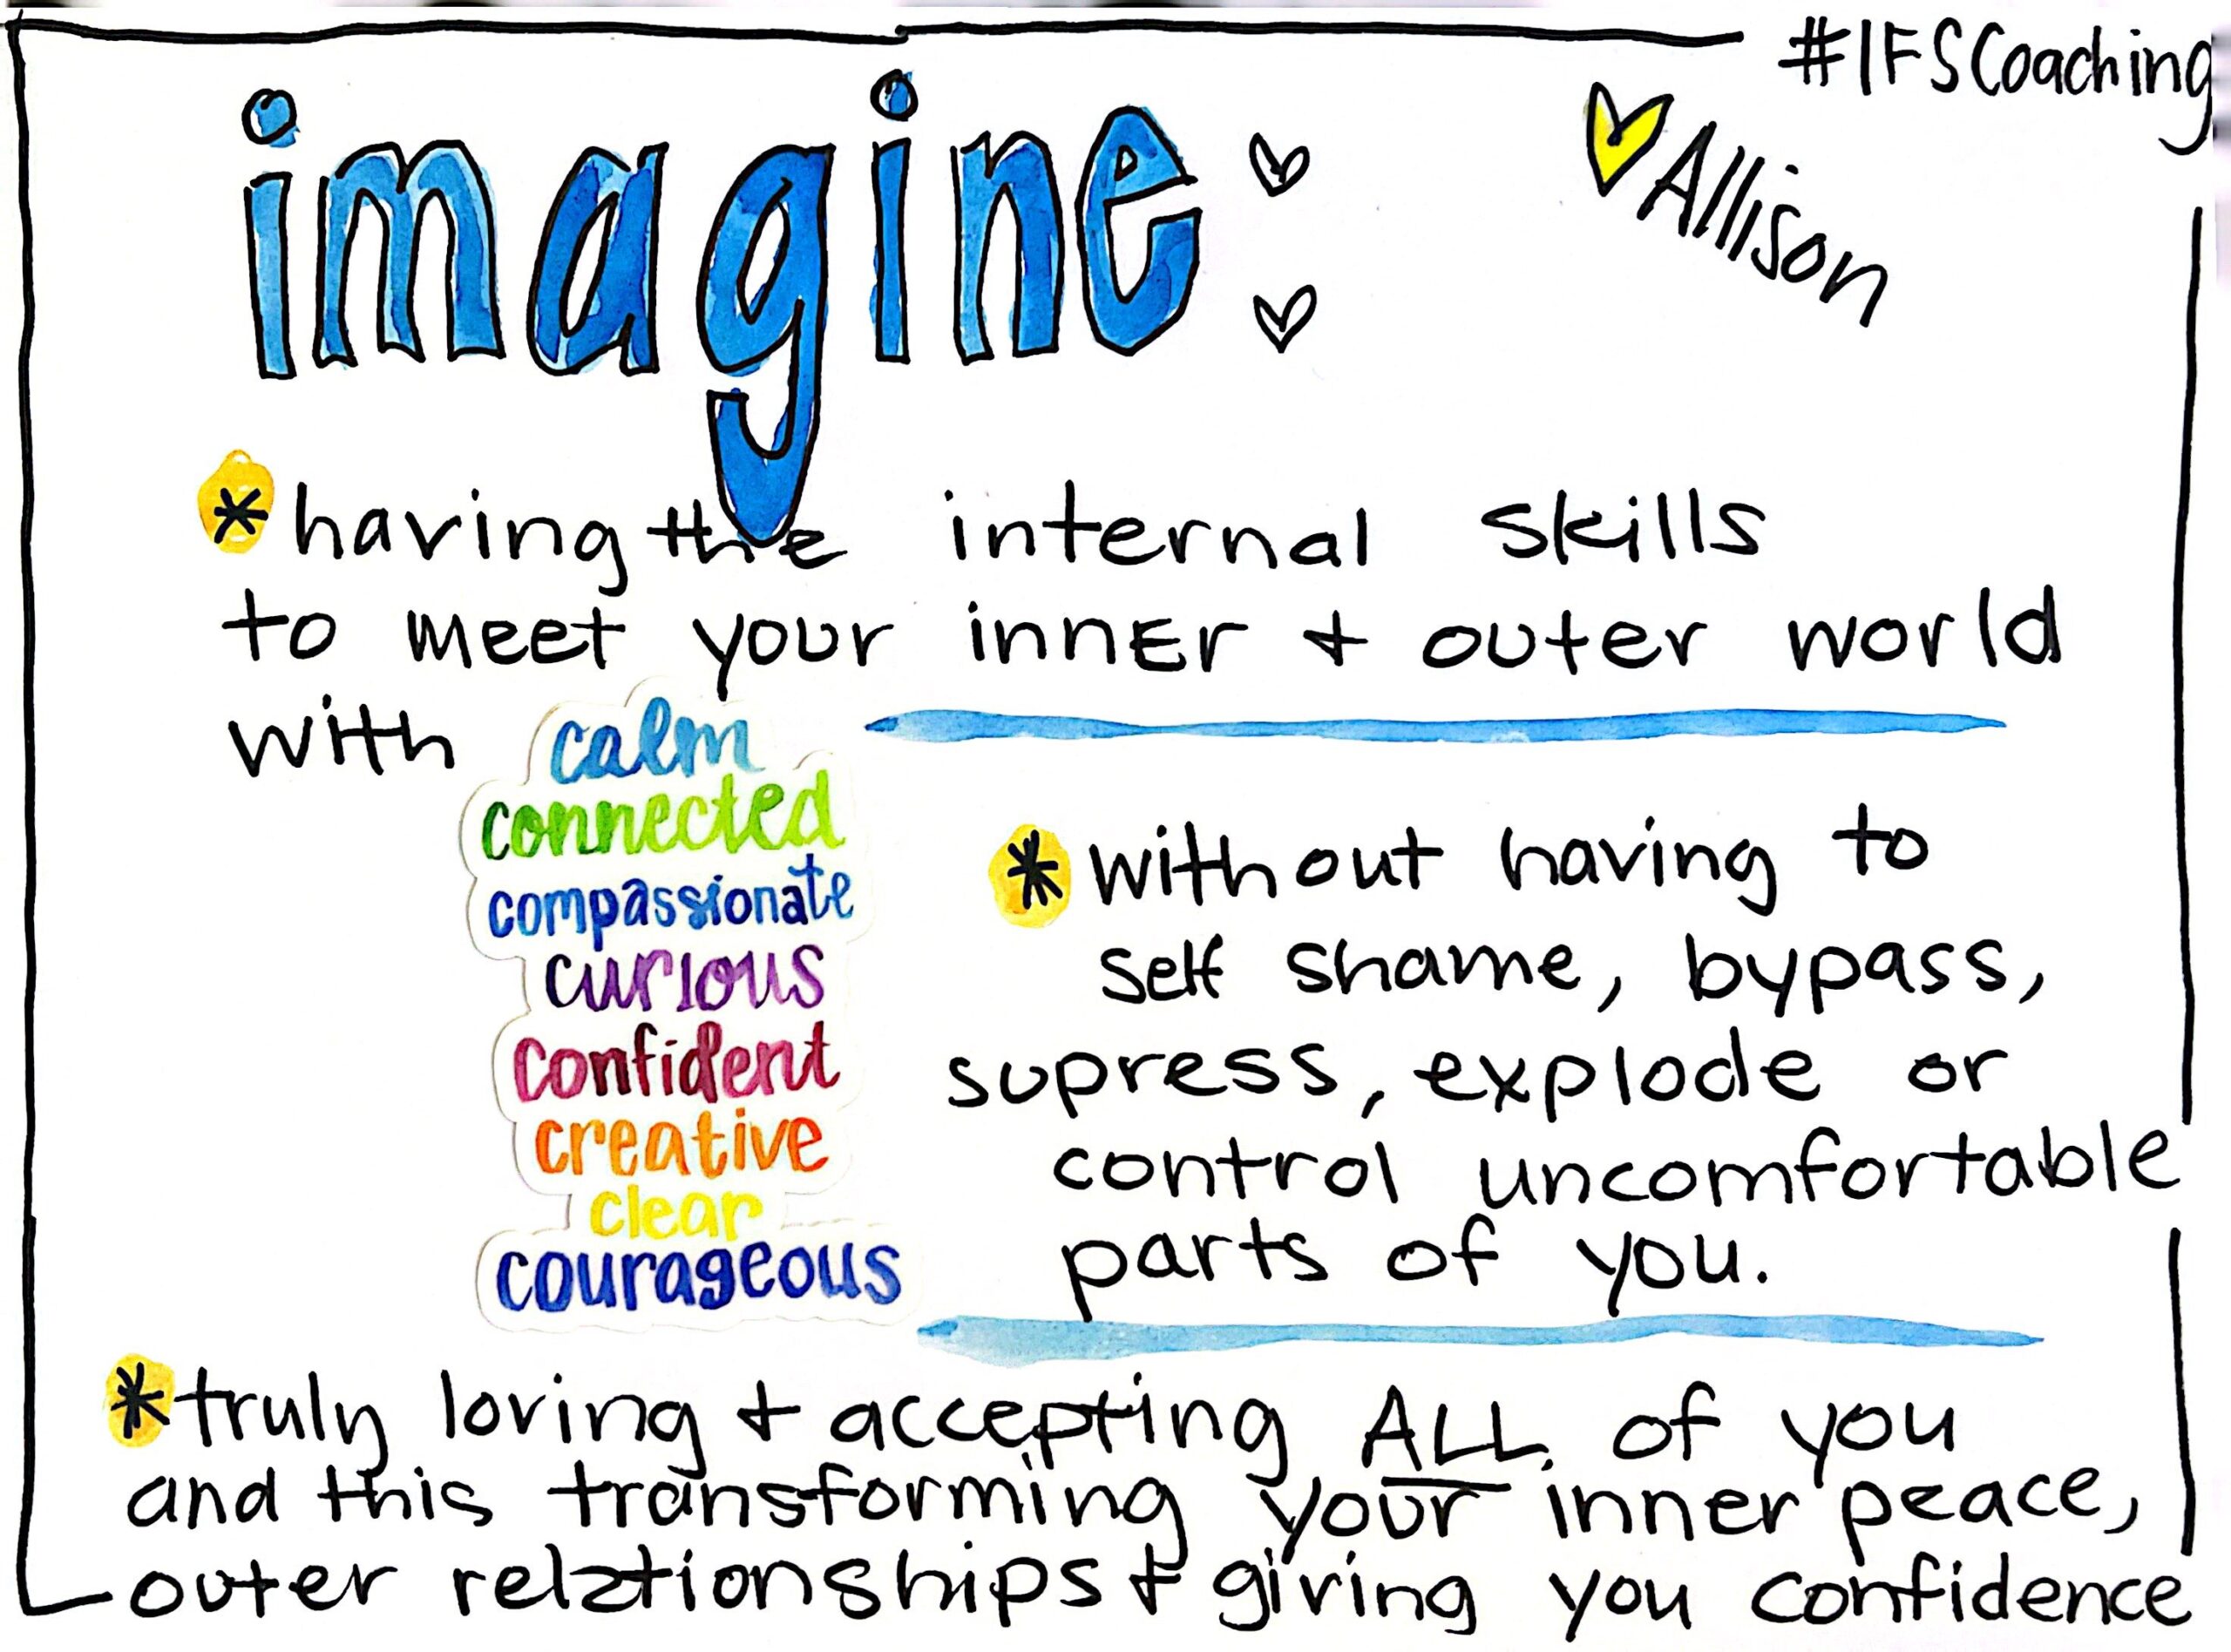 #IFSCoaching
imagine
Allison
*having the internal skills
to meet your inner + outer world
with
calm
connected
compassionate
curious
confident
creative
clear
courageous
*without having to
self shame, bypass,
supress, explode or
control uncomfortable
parts of you.
*truly loving + accepting ALL of you
and this transforming your inner peace,
outer relationships + giving you confidence